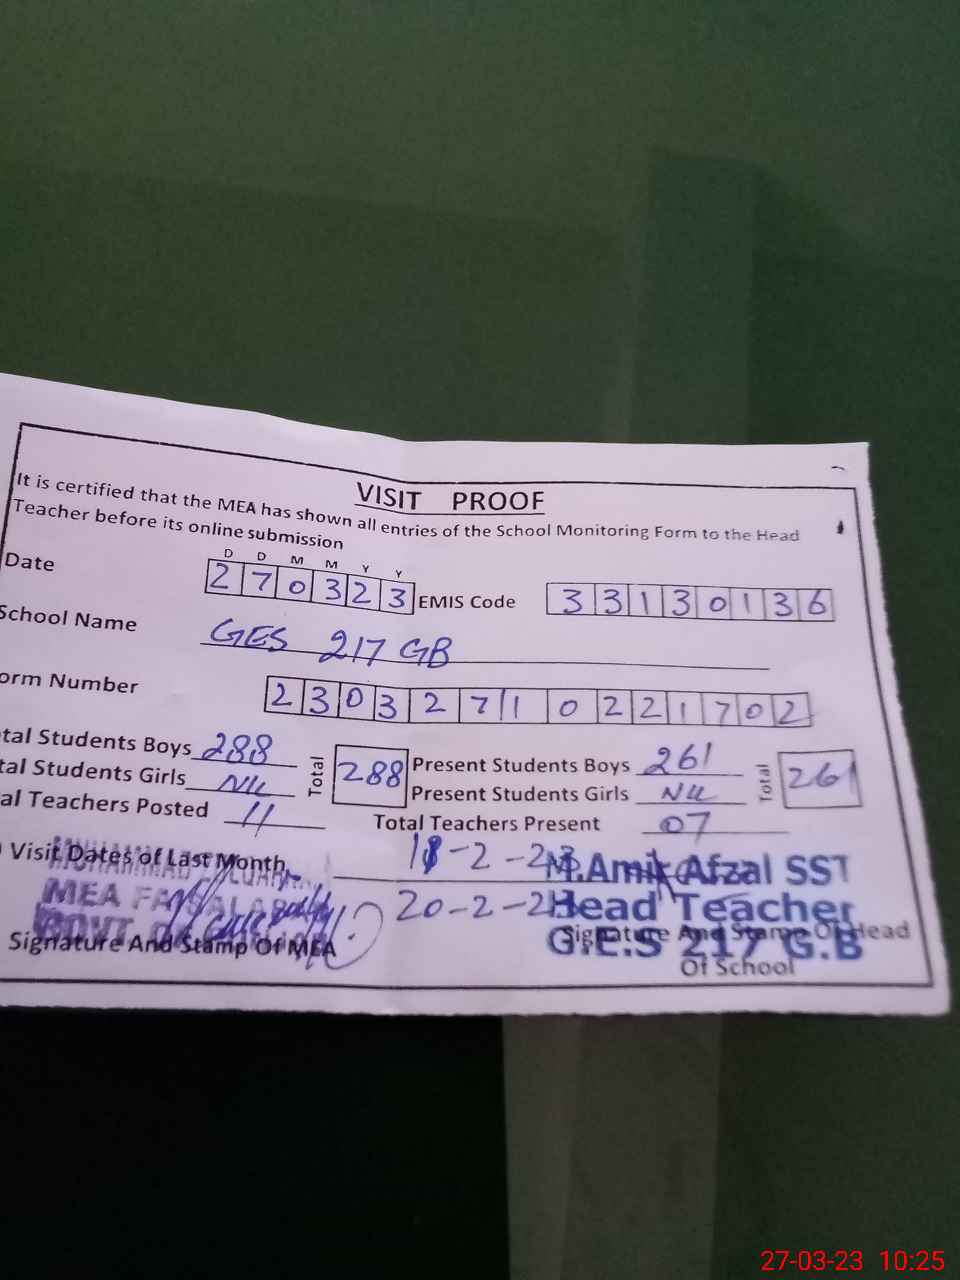 VISIT PROOF
It is certified that the MEA has shown all entries of the School Monitoring Form to the Head
Teacher before its online submission
D D M M Y Y
Date 270323 EMIS Code 33130136
School Name GES 217 GB
orm Number 23032710221702
tal Students Boys 288 Total 288 Present Students Boys 261 Total 261
tal Students Girls Nil Present Students Girls Nil
al Teachers Posted 11 Total Teachers Present 07
Visit Dates of Last Month 18-2-23
20-2-23
MUHAMMAD
MEA FAISALABAD
GOVT
Signature And Stamp Of MEA
M.Amir Afzal SST
Head Teacher
G.E.S 217 G.B
Signature And Stamp Of Head
Of School
27-03-23 10:25